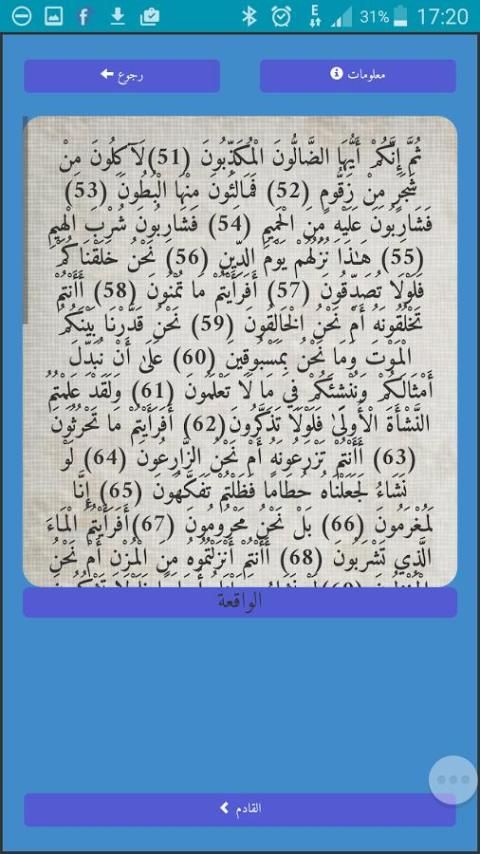 31% 17:20
معلومات
رجوع
ثُمَّ إِنَّكُمْ أَيُّهَا الضَّالُّونَ الْمُكَذِّبُونَ (51) لَآكِلُونَ مِنْ
شَجَرٍ مِنْ زَقُّومٍ (52) فَمَالِئُونَ مِنْهَا الْبُطُونَ (53)
فَشَارِبُونَ عَلَيْهِ مِنَ الْحَمِيمِ (54) فَشَارِبُونَ شُرْبَ الْهِيمِ
(55) هَـٰذَا نُزُلُهُمْ يَوْمَ الدِّينِ (56) نَحْنُ خَلَقْنَاكُمْ
فَلَوْلَا تُصَدِّقُونَ (57) أَفَرَأَيْتُمْ مَا تُمْنُونَ (58) أَأَنْتُمْ
تَخْلُقُونَهُ أَمْ نَحْنُ الْخَالِقُونَ (59) نَحْنُ قَدَّرْنَا بَيْنَكُمُ
الْمَوْتَ وَمَا نَحْنُ بِمَسْبُوقِينَ (60) عَلَىٰ أَنْ نُبَدِّلَ
أَمْثَالَكُمْ وَنُنْشِئَكُمْ فِي مَا لَا تَعْلَمُونَ (61) وَلَقَدْ عَلِمْتُمُ
النَّشْأَةَ الْأُولَىٰ فَلَوْلَا تَذَكَّرُونَ (62) أَفَرَأَيْتُمْ مَا تَحْرُثُونَ
(63) أَأَنْتُمْ تَزْرَعُونَهُ أَمْ نَحْنُ الزَّارِعُونَ (64) لَوْ
نَشَاءُ لَجَعَلْنَاهُ حُطَامًا فَظَلْتُمْ تَفَكَّهُونَ (65) إِنَّا
لَمُغْرَمُونَ (66) بَلْ نَحْنُ مَحْرُومُونَ (67) أَفَرَأَيْتُمُ الْمَاءَ
الَّذِي تَشْرَبُونَ (68) أَأَنْتُمْ أَنْزَلْتُمُوهُ مِنَ الْمُزْنِ أَمْ نَحْنُ
الواقعة
القادم